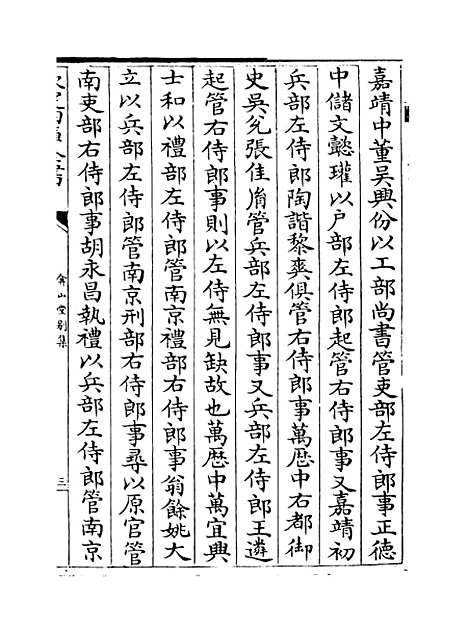 嘉靖中董吳興份以工部尚書管吏部左侍郎事正德
中儲文懿瓘以戶部左侍郎起管右侍郎事又嘉靖初
兵部左侍郎陶諧黎奭俱管右侍郎事萬歷中右都御
史吳兊張佳胤管兵部左侍郎事又兵部左侍郎王遴
起管右侍郎事則以左侍無見缺故也萬歷中萬宜興
士和以禮部左侍郎管南京禮部右侍郎事翁餘姚大
立以兵部左侍郎管南京刑部右侍郎事尋以原官管
南吏部右侍郎事胡永昌執禮以兵部左侍郎管南京
弇山堂別集
三